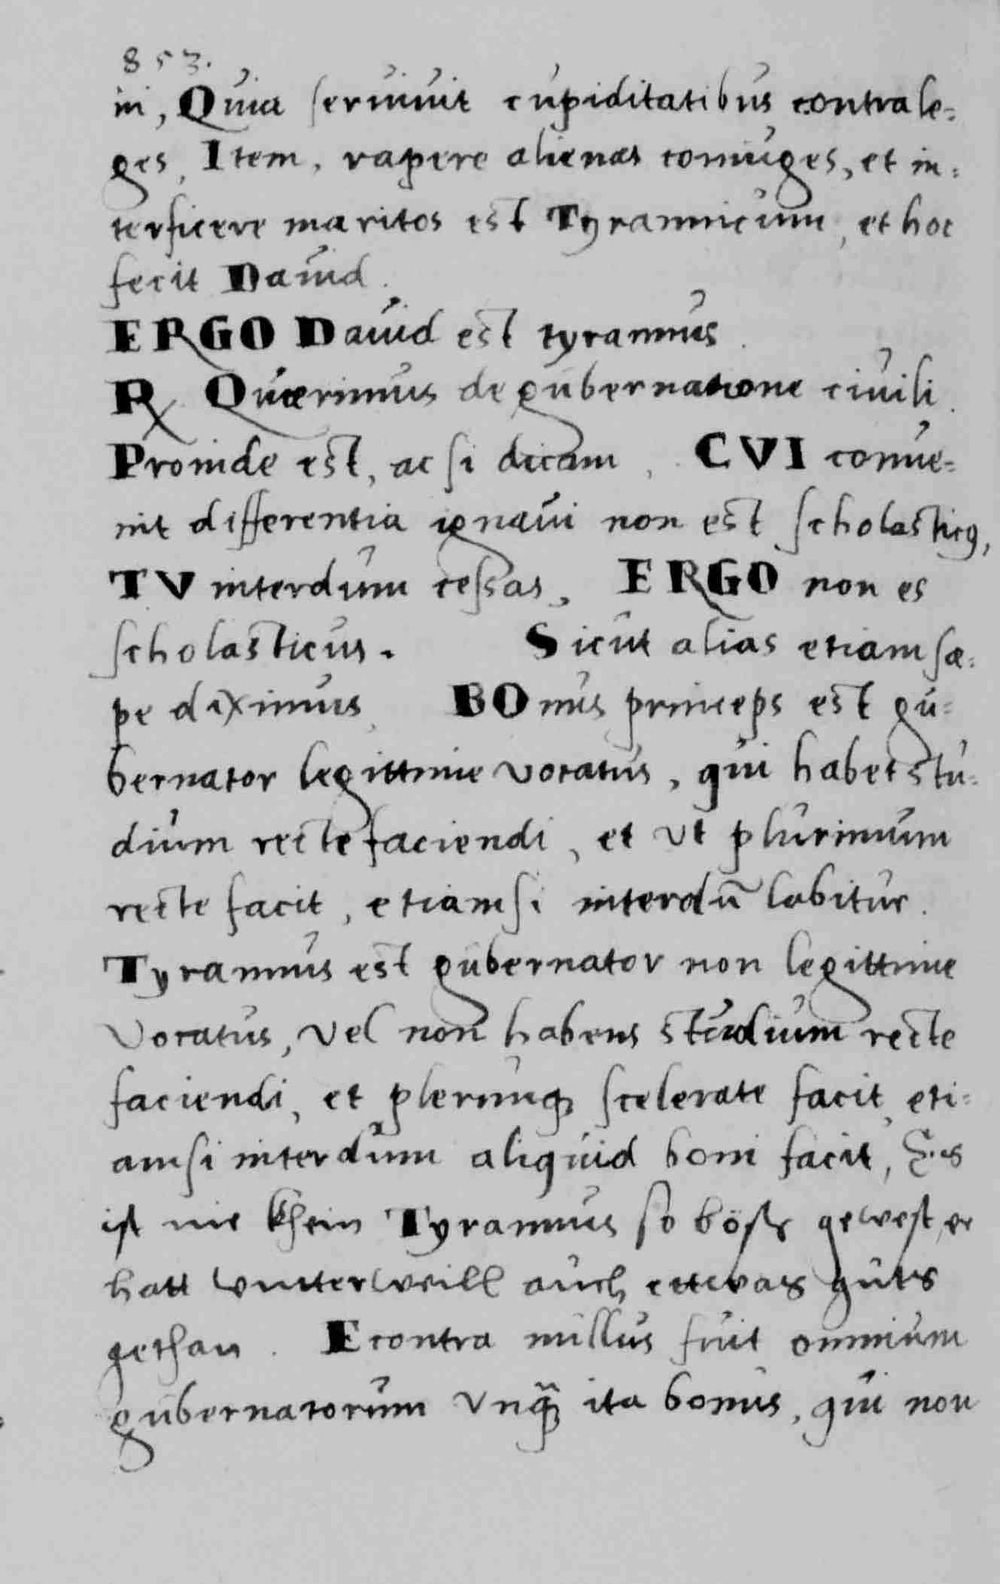 853.
ni, Quia seruiuit cupiditatibus contra le=
ges, Item, rapere alienas coniuges, et in=
terficere maritos est Tyrannicum, et hoc
fecit Dauid.
ERGO Dauid est tyrannus.
℞ Quærimus de gubernatione ciuili.
Proinde est, ac si dicam, CVI conue=
nit differentia ignaui non est scholasticꝰ,
TV interdum cessas, ERGO non es
scholasticus. Sicut alias etiam sæ=
pe diximus BOnus princeps est gu=
bernator legittime vocatus, qui habet stu=
dium recte faciendi, et vt plurimum
recte facit, etiamsi interdū labitur.
Tyrannus est gubernator non legittime
vocatus, vel non habens studium recte
faciendi, et plerunqꝫ scelerate facit, eti=
amsi interdum aliquid boni facit, Es
ist nie khein Tyrannus so böse gewest, er
hatt vnterweill auch ettwas guts
gethan. Econtra nullus fuit omnium
gubernatorum vnqꝫ̃ ita bonus, qui non